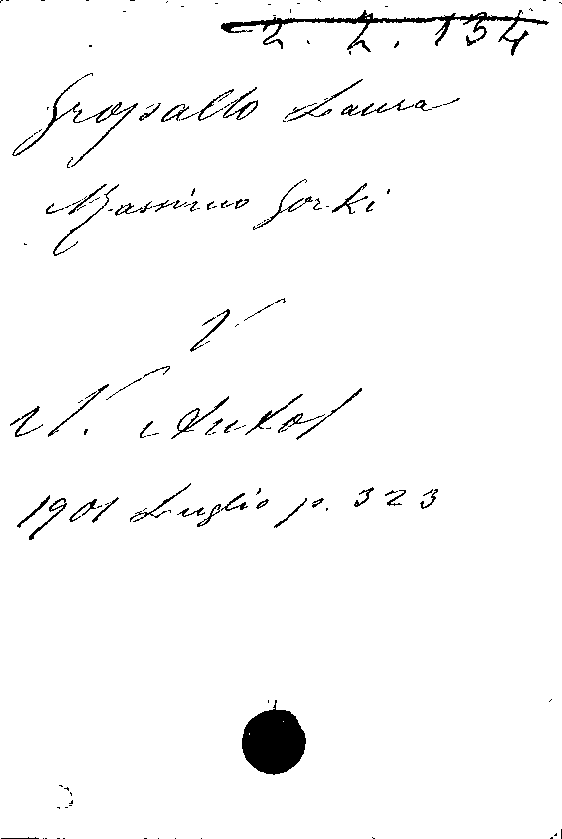 2. 2. 134
Gropallo Laura
Massimo Gorki
V
N. Antol
1901 Luglio p. 323